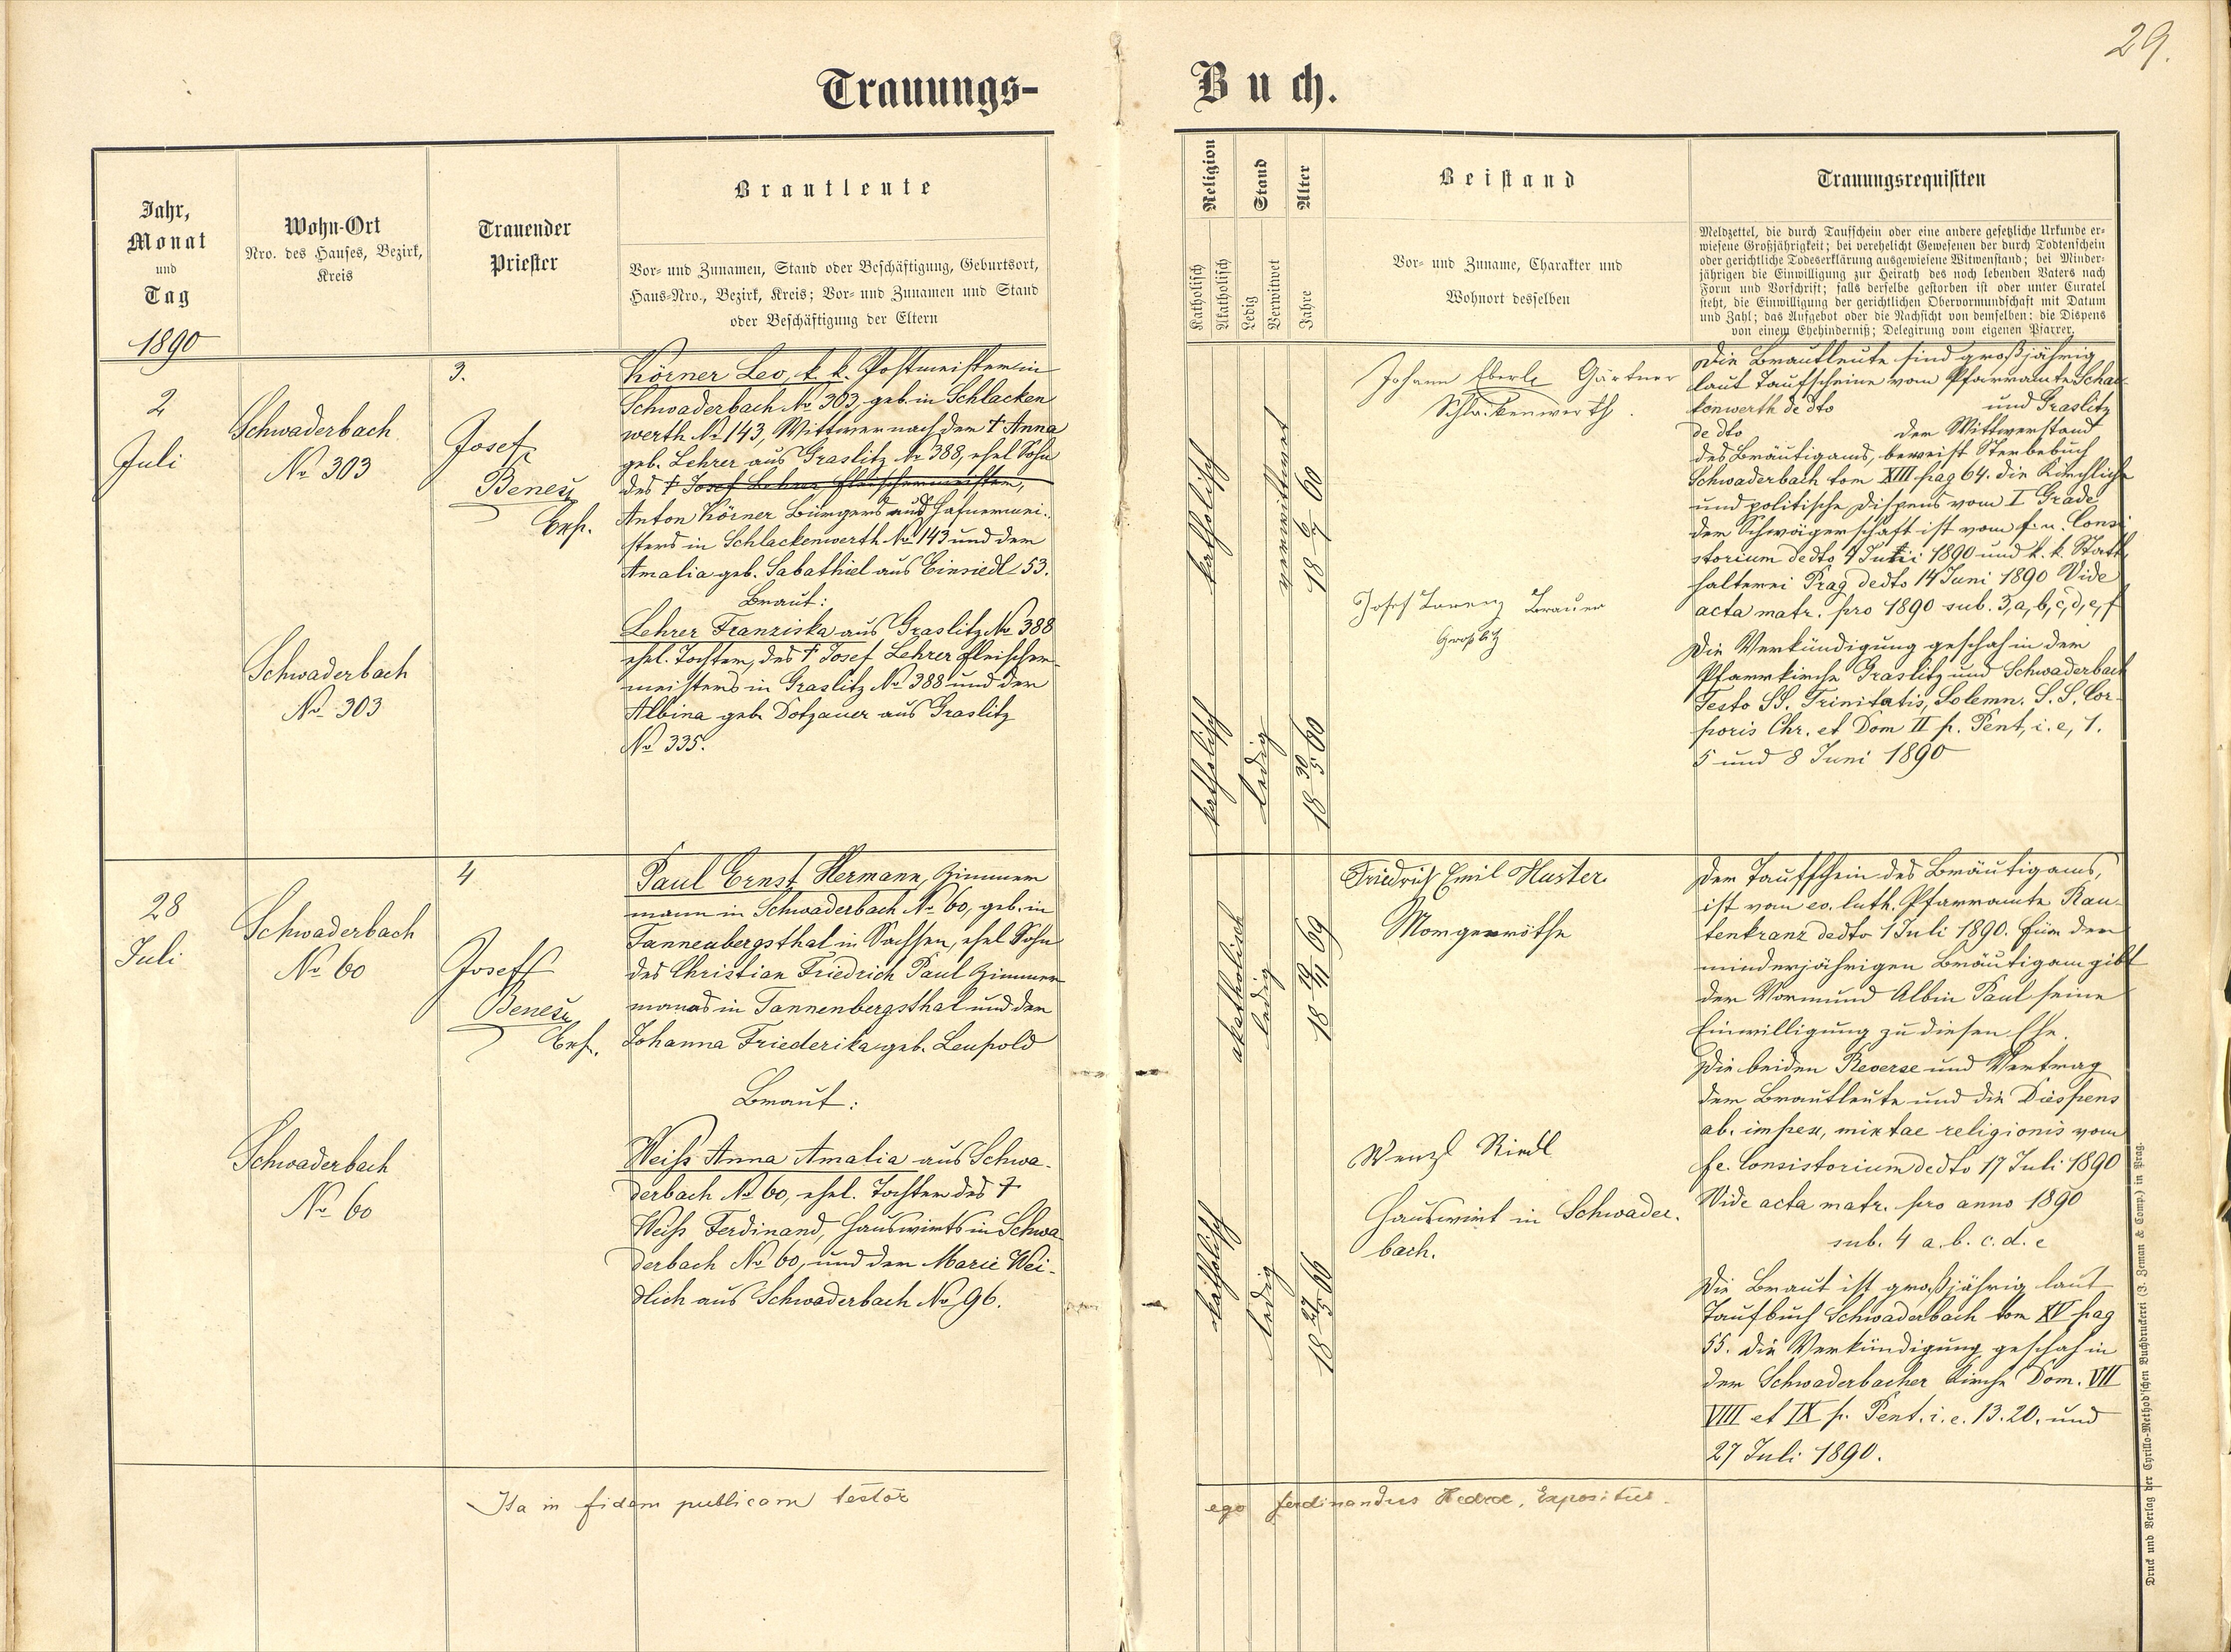 29.
Trauungs-
Buch.
Jahr,
Monat
und
Tag
1890
Wohn-Ort
Nro. des Hauses, Bezirk,
Kreis
Trauender
Priester
Brautleute
Vor- und Zunamen, Stand oder Beschäftigung, Geburtsort,
Haus-Nro., Bezirk, Kreis; Vor- und Zunamen und Stand
oder Beschäftigung der Eltern
Religion
Katholisch
Akatholisch
Stand
Ledig
Verwitwet
Alter
Jahre
Beistand
Vor- und Zuname, Charakter und
Wohnort desselben
Trauungsrequisiten
Meldzettel, die durch Taufschein oder eine andere gesetzliche Urkunde er-
wiesene Großjährigkeit; bei verehelicht Gewesenen der durch Todtenschein
oder gerichtliche Todeserklärung ausgewiesene Witwenstand; bei Minder-
jährigen die Einwilligung zur Heirath des noch lebenden Vaters nach
Form und Vorschrift; falls derselbe gestorben ist oder unter Curatel
steht, die Einwilligung der gerichtlichen Obervormundschaft mit Datum
und Zahl; das Aufgebot oder die Nachsicht von demselben: die Dispens
von einem Ehehinderniß; Delegirung vom eigenen Pfarrer.
2
Juli
Schwaderbach
No 303
Schwaderbach
No 303
3.
Josef
Beneš
Exp.
Körner Leo, k. k. Postmeister in
Schwaderbach No 303 geb. in Schlacken
werth No 143, Wittwer nach der † Anna
geb. Lehrer aus Graslitz No 388, ehel Sohn
des † Josef Lehrer Fleischermeisters,
Anton Körner Bürgers und Hafnermei-
sters in Schlackenwerth No 143 und der
Amalia geb. Sabathiel aus Einsiedl 53.
Braut:
Lehrer Franziska aus Graslitz No 388
ehel. Tochter, des † Josef Lehrer Fleischer-
meisters in Graslitz No 388 und der
Albina geb. Dotzauer aus Graslitz
No 335.
katholisch
verwittwet
18 6/7 60
katholisch
ledig
18 30/5 60
Johann Eberl Gärtner
Schlackenwerth.
Josef Lorenz Brauer
Graslitz
Die Brautleute sind großjährig
laut Taufscheine vom Pfarramte Schla-
kenwerth de dto und Graslitz
de dto der Wittwerstand
des Bräutigams, beweist Sterbebuch
Schwaderbach tom XIII pag 64. die Kirchliche
und politische Dispens vom I Grade
der Schwägerschaft ist vom f. e. Consi
storium dedto 4 Juni 1890 und k. k. Statt
halterei Prag dedto 14 Juni 1890 Vide
acta matr. pro 1890 sub. 3, a, b, c, d, e, f
Die Verkündigung geschah in der
Pfarrkirche Graslitz und Schwaderbach
Festo SS. Trinitatis, Solemn. S. S. Cor-
poris Chr. et Dom II p. Pent, i. e, 1.
5 und 8 Juni 1890
28
Juli
Schwaderbach
No 60
Schwaderbach
No 60
4
Josef
Beneš
Exp.
Paul Ernst Hermann, Zimmer
mann in Schwaderbach No 60, geb. in
Tannenbergsthal in Sachsen, ehel Sohn
des Christian Friedrich Paul Zimmer
manns in Tannenbergsthal und der
Johanna Friederika geb. Leupold
Braut:
Weiss Anna Amalia aus Schwa-
derbach No 60, ehel. Tochter des †
Weiss Ferdinand, Hauswirts in Schwa
derbach No 60, und der Marie Wei-
dlich aus Schwaderbach No 96.
akatholisch
ledig
katholisch
ledig
18 27/5 66
Friedrich Emil Huster
Morgenröthe
Wenzl Riedl
Hauswirt in Schwader-
bach.
Der Taufschein des Bräutigams,
ist vom ev. luth. Pfarramte Rau-
tenkranz dedto 1 Juli 1890. Für den
minderjährigen Bräutigam gibt
der Vormund Albin Paul seine
Einwilligung zu diesen Ehe.
Die beiden Reverse und Vertrag
der Brautleute und die Dispens
ab. imped, mixtae religionis vom
f e. Consistorium dedto 17 Juli 1890
Vide acta matr. pro anno 1890
sub. 4 a. b. c. d. e
Die Braut ist großjährig laut
Taufbuch Schwaderbach tom XV pag
55. die Verkündigung geschah in
der Schwaderbacher Kirche Dom. VII
VIII et IX p. Pent. i. e. 13. 20. und
27 Juli 1890.
Ita in fidem publicam testor
ego Ferdinandus Expositus.
Druck und Verlag der Cyrillo-Method'schen Buchdruckerei (J. Zeman & Comp.) in Prag.